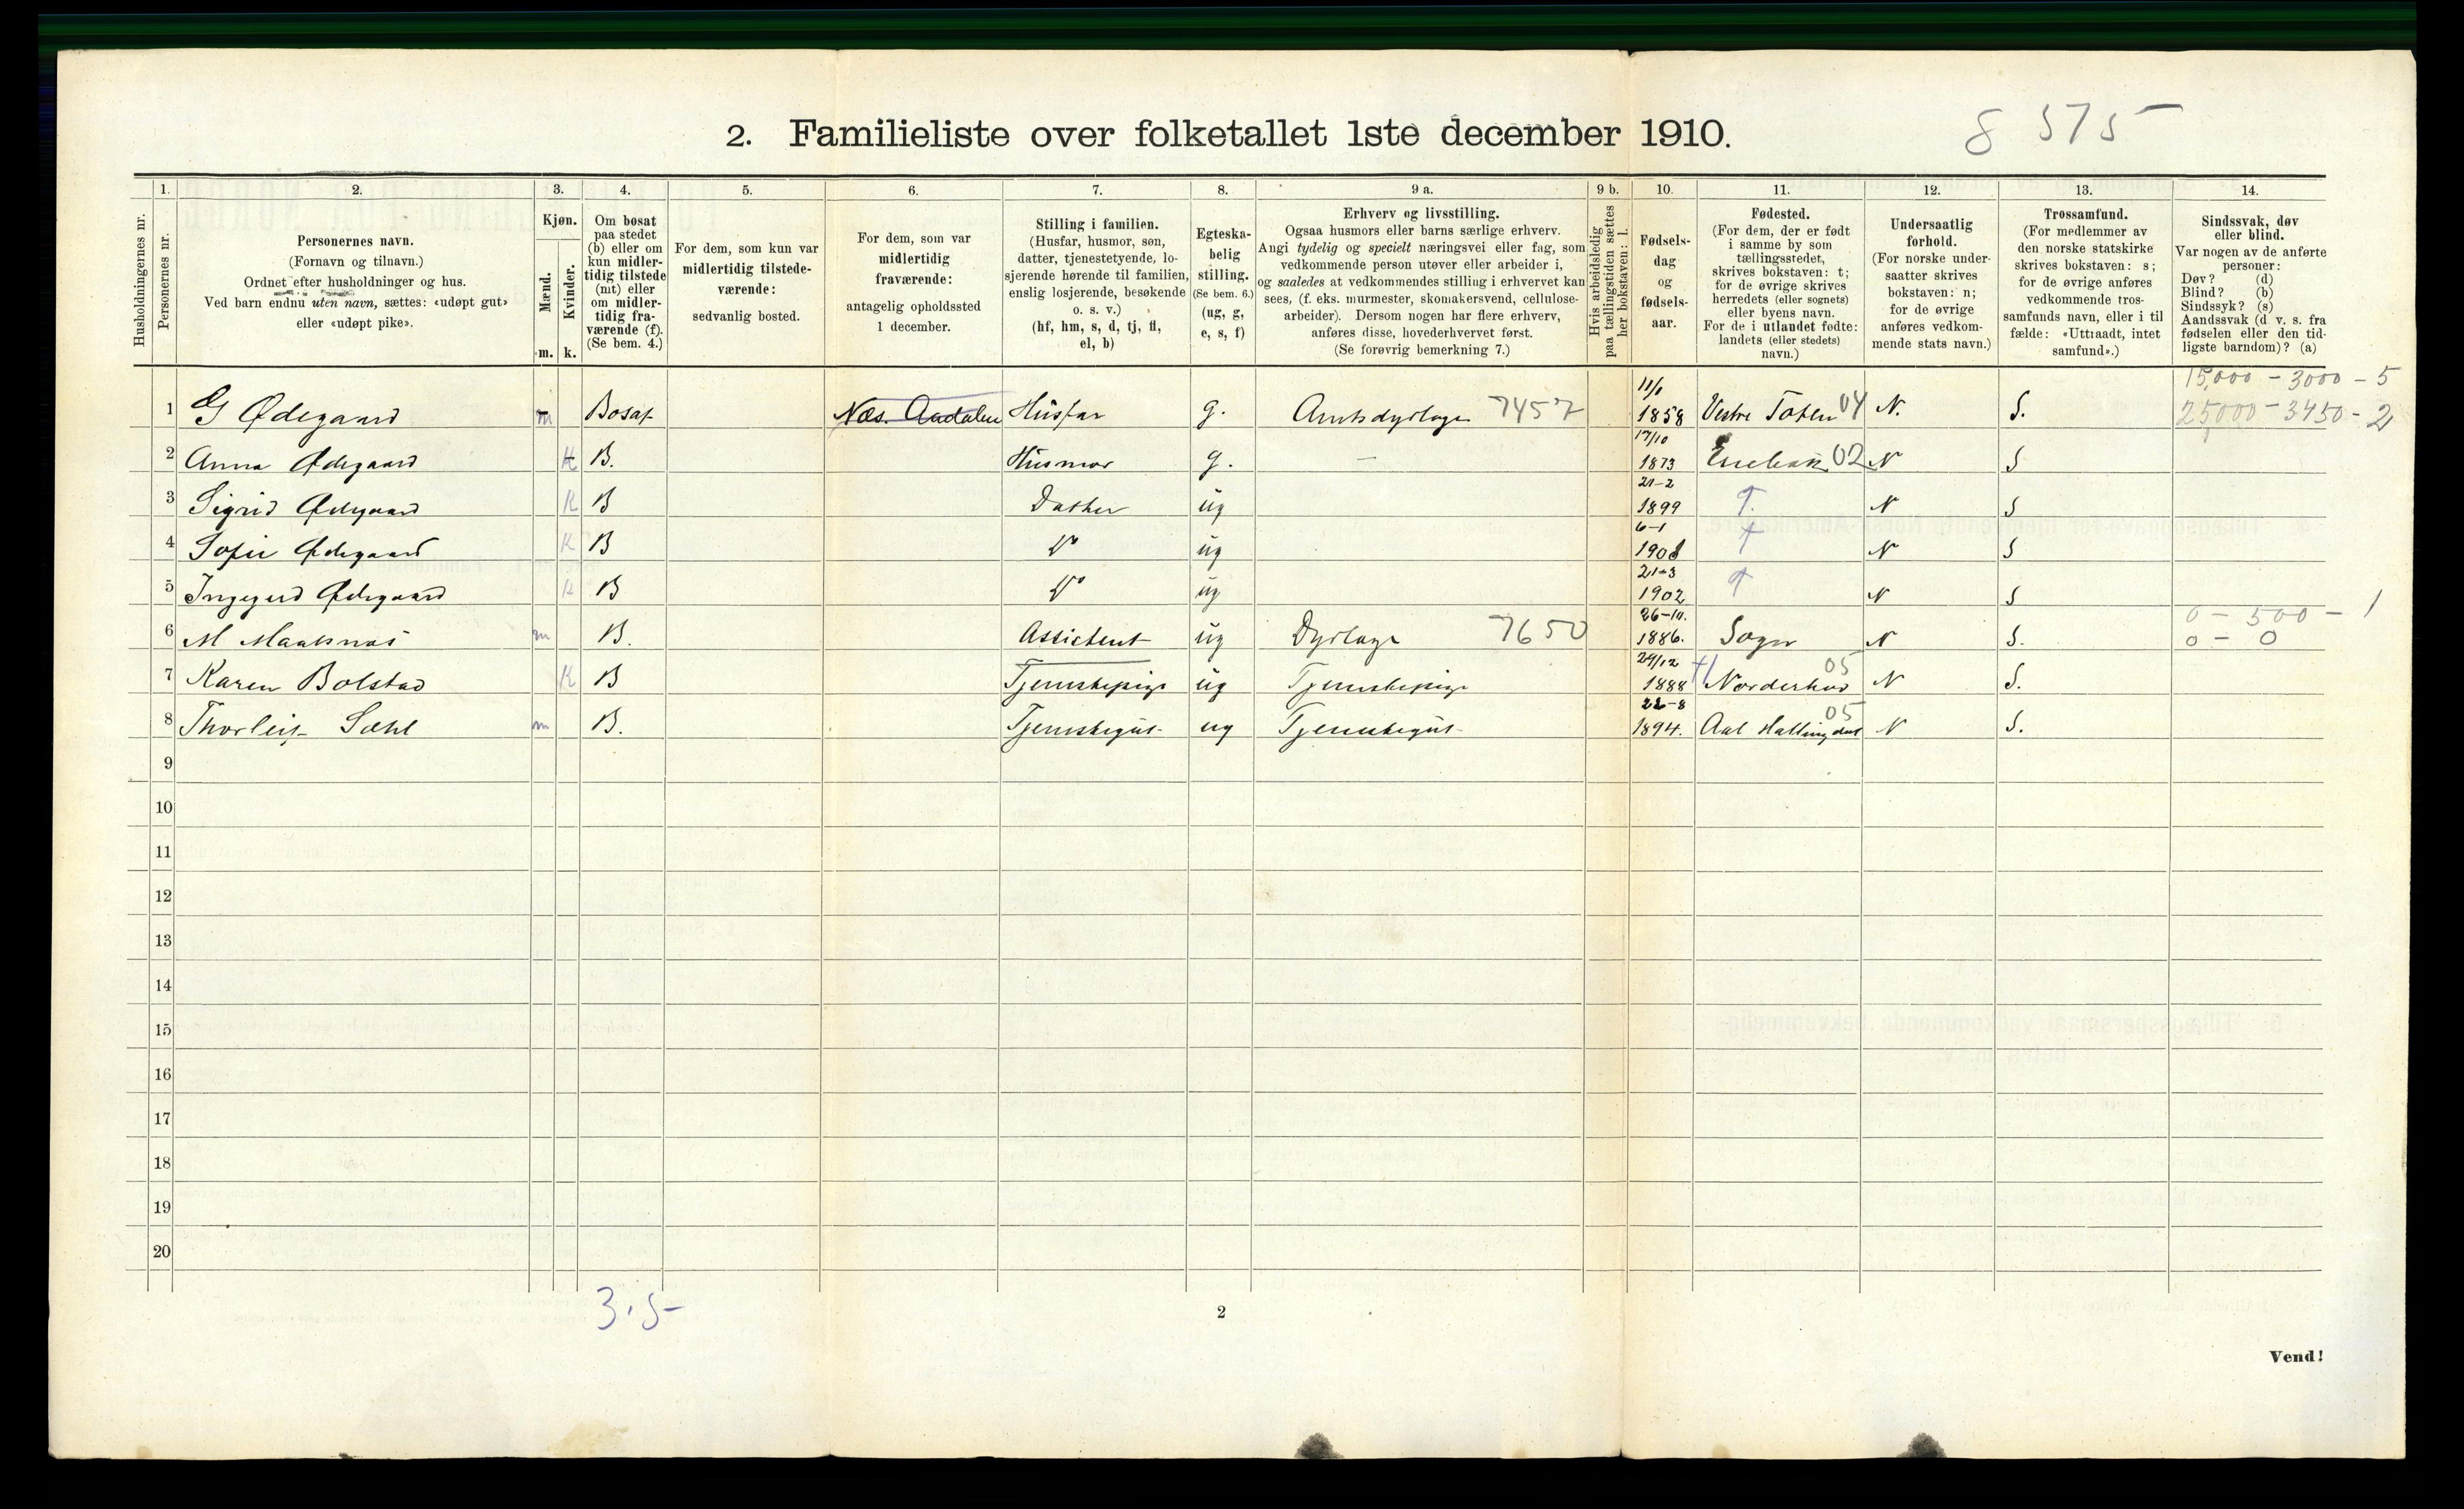 2. Familieliste over folketallet 1ste december 1910.
8 575
Husholdningernes nr.
1. Personernes nr.
2. Personernes navn.
(Fornavn og tilnavn.)
Ordnet efter husholdninger og hus.
Ved barn endnu uten navn, sættes: «udøpt gut»
eller «udøpt pike».
3. Kjøn.
Mænd. Kvinder.
m. k.
4. Om bosat
paa stedet
(b) eller om
kun midler-
tidig tilstede
(mt) eller
om midler-
tidig fra-
værende (f).
(Se bem. 4.)
5. For dem, som kun var
midlertidig tilstede-
værende:
sedvanlig bosted.
6. For dem, som var
midlertidig
fraværende:
antagelig opholdssted
1 december.
7. Stilling i familien.
(Husfar, husmor, søn,
datter, tjenestetyende, lo-
sjerende hørende til familien,
enslig losjerende, besøkende
o. s. v.)
(hf, hm, s, d, tj, fl,
el, b)
8. Egteska-
belig
stilling.
(Se bem. 6.)
(ug, g,
e, s, f)
9 a. Erhverv og livsstilling.
Ogsaa husmors eller barns særlige erhverv.
Angi tydelig og specielt næringsvei eller fag, som
vedkommende person utøver eller arbeider i,
og saaledes at vedkommendes stilling i erhvervet kan
sees, (f. eks. murmester, skomakersvend, cellulose-
arbeider). Dersom nogen har flere erhverv,
anføres disse, hovederhvervet først.
(Se forøvrig bemerkning 7.)
9 b. Hvis arbeidsledig
paa tællingstiden sættes
her bokstaven: l.
10. Fødsels-
dag
og
fødsels-
aar.
11. Fødested.
(For dem, der er født
i samme by som
tællingsstedet,
skrives bokstaven: t;
for de øvrige skrives
herredets (eller sognets)
eller byens navn.
For de i utlandet fødte:
landets (eller stedets)
navn.)
12. Undersaatlig
forhold.
(For norske under-
saatter skrives
bokstaven: n;
for de øvrige
anføres vedkom-
mende stats navn.)
13. Trossamfund.
(For medlemmer av
den norske statskirke
skrives bokstaven: s;
for de øvrige anføres
vedkommende tros-
samfunds navn, eller i til
fælde: «Uttraadt, intet
samfund».)
14. Sindssvak, døv
eller blind.
Var nogen av de anførte
personer:
Døv? (d)
Blind? (b)
Sindssyk? (s)
Aandssvak (d. v. s. fra
fødselen eller den tid-
ligste barndom)? (a)
15,000 - 3000 - 5
1 G Ødegaard m Bosat Næs. Aadalen Husfar g. Amtsdyrlæge 7457 11/1 1858 Vestre Toten 04 N. S. 25,000 - 3450 - 2
2 Anna Ødegaard K B. Husmor g. — 17/10 1873 Enebak 02 N S
3 Sigrid Ødegaard K B Datter ug 21-2 1899 T. N S
4 Sofie Ødegaard K B Do ug 6-1 1901 T N S
5 Ingegerd Ødegaard K B Do ug 21-3 1902 T N S
0 - 500 - 1
6 M Maaksnæs m B. Assistent ug Dyrlæge 7650 26-10. 1886. Sogn N S. 0 - 0
7 Karen Bolstad K B Tjenestepige ug Tjenestepige 24/12 1888 Norderhov 05 N S.
8 Thorleif Sæhl m B. Tjenestegut ug Tjenestegut 22-8 1894. Aal Hallingdal 05 N S.
9
10
11
12
13
14
15
16
17
18
19
20
3.5-
2
Vend!